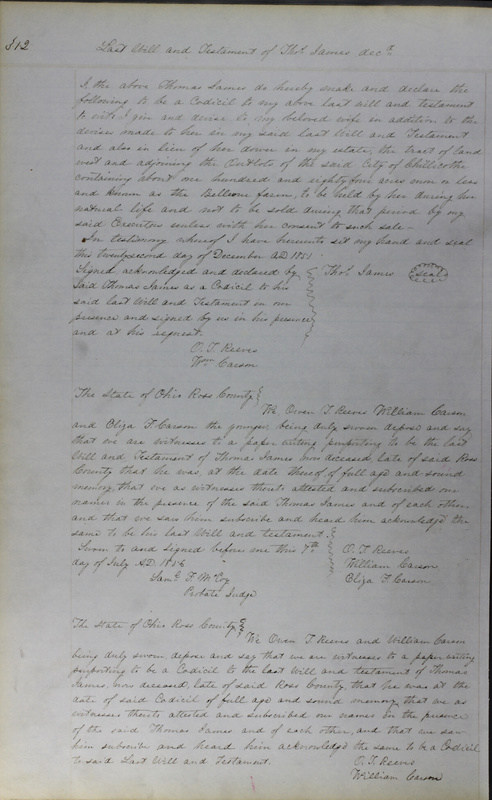 512
Last Will and Testament of Thos. James decd.
I the above Thomas James do hereby make and declare the
following to be a Codicil to my above last will and testament
to wit: I give and devise to my beloved wife in addition to the
devises made to her in my said last Will and Testament
and also in lieu of her dower in my estate, the tract of land
west and adjoining the Outlots of the said City of Chillicothe
containing about one hundred and eighty four acres more or less
and known as the farm, to be held by her during her
natural life and not to be sold during that period by my
said Executors unless with her consent to such sale—
In testimony whereof I have hereunto set my hand and seal
this twenty second day of December AD 1851
Signed acknowledged and declared by
said Thomas James as a Codicil to his
said last Will and Testament in our
presence and signed by us in his presence
and at his request.
Thos. James seal
O. T. Reeves
Wm Carson
The State of Ohio Ross County
We Owen T. Reeves William Carson
and Eliza F. Carson the younger being duly sworn depose and say
that we are witnesses to a paper writing purporting to be the last
Will and Testament of Thomas James now deceased, late of said Ross
County that he was, at the date thereof of full age and sound
memory, that we as witnesses thereto attested and subscribed our
names in the presence of the said Thomas James and of each other
and that we saw him subscribe and heard him acknowledge the
same to be his last Will and testament.
Sworn to and signed before me this 7th
day of July AD. 1856
Saml. F. McCoy
Probate Judge
O. T. Reeves
William Carson
Eliza F. Carson
The State of Ohio Ross County
We Owen T. Reeves and William Carson
being duly sworn depose and say that we are witnesses to a paper writing
purporting to be a Codicil to the last Will and testament of Thomas
James, now deceased, late of said Ross County, that he was at the
date of said Codicil of full age and sound memory, that we as
witnesses thereto attested and subscribed our names in the presence
of the said Thomas James and of each other, and that we saw
him subscribe and heard him acknowledge the same to be a Codicil
to said Last Will and Testament.
O. T. Reeves
William Carson